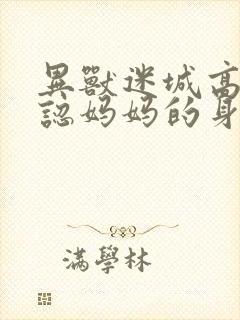 異獸迷城高
認媽媽的身
滿學林